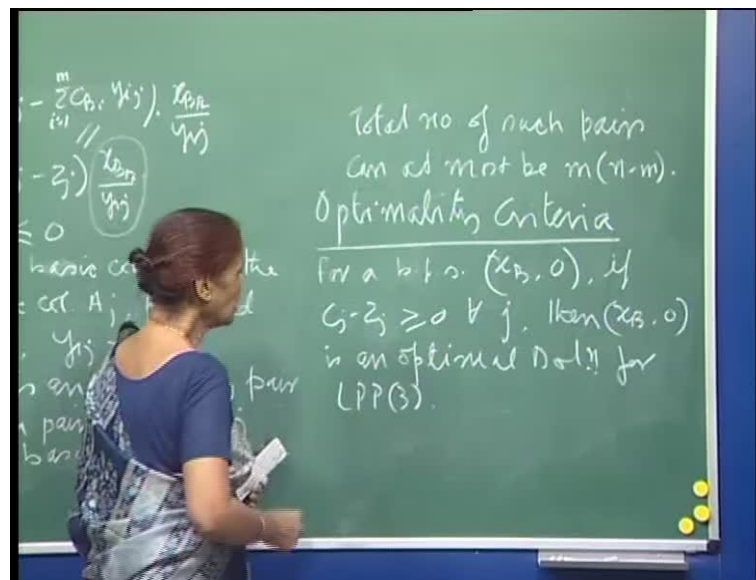 j - Σ_{i=1}^{m} C_{B_i} y_{ij}) . x_{Br} / y_{rj}
j - Zj) x_{Br} / y_{rj}
≤ 0
basic the
col. Aj,
yrj
an pair
pair
Total no of such pairs
can at most be m(n-m).
Optimality Criteria
For a b.f.s. (x_B, 0), if
Cj-Zj ≥ 0 ∀ j, then (x_B, 0)
is an optimal Sol!! for
LPP(3).